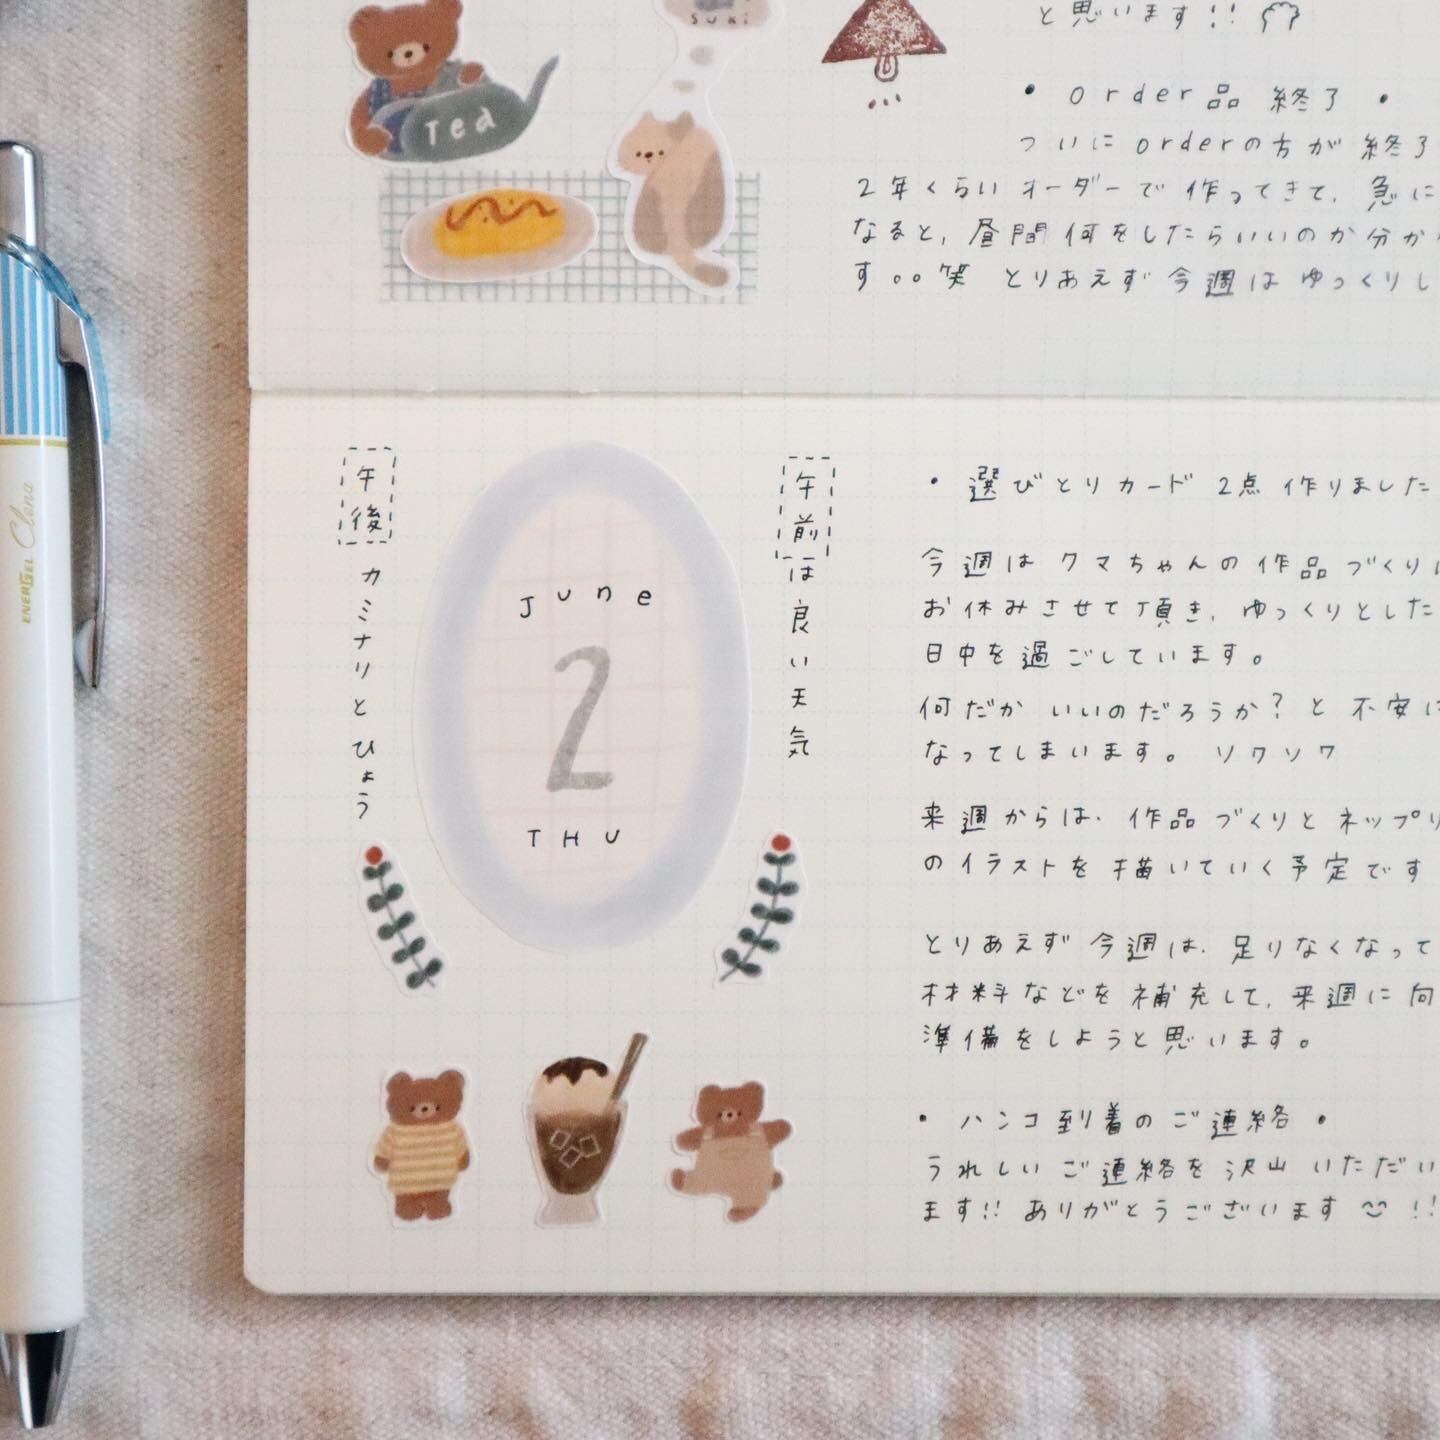 suki
と思います!!
Tea
• order品 終了 •
ついにorderの方が 終了
2年くらい オーダーで 作ってきて、急に
なると、昼間 何をしたらいいのか分か
す。。笑 とりあえず 今週は ゆっくりし
午後
カミナリとひょう
June
2
THU
午前
は良い天気
• 選びとりカード 2点 作りました
今週は クマちゃんの 作品 づくり
お休みさせて頂き、ゆっくりとした
日中を 過ごしています。
何だか いいのだろうか? と 不安に
なってしまいます。 ソワソワ
来週からは、作品 づくりと ネップリ
のイラストを 描いていく予定です
とりあえず 今週は、足りなくなって
材料などを 補充して、来週に 向
準備をしようと思います。
• ハンコ到着の ご連絡 •
うれしい ご連絡を 沢山 いただい
ます!! ありがとうございます !!
ENERGEL Clena